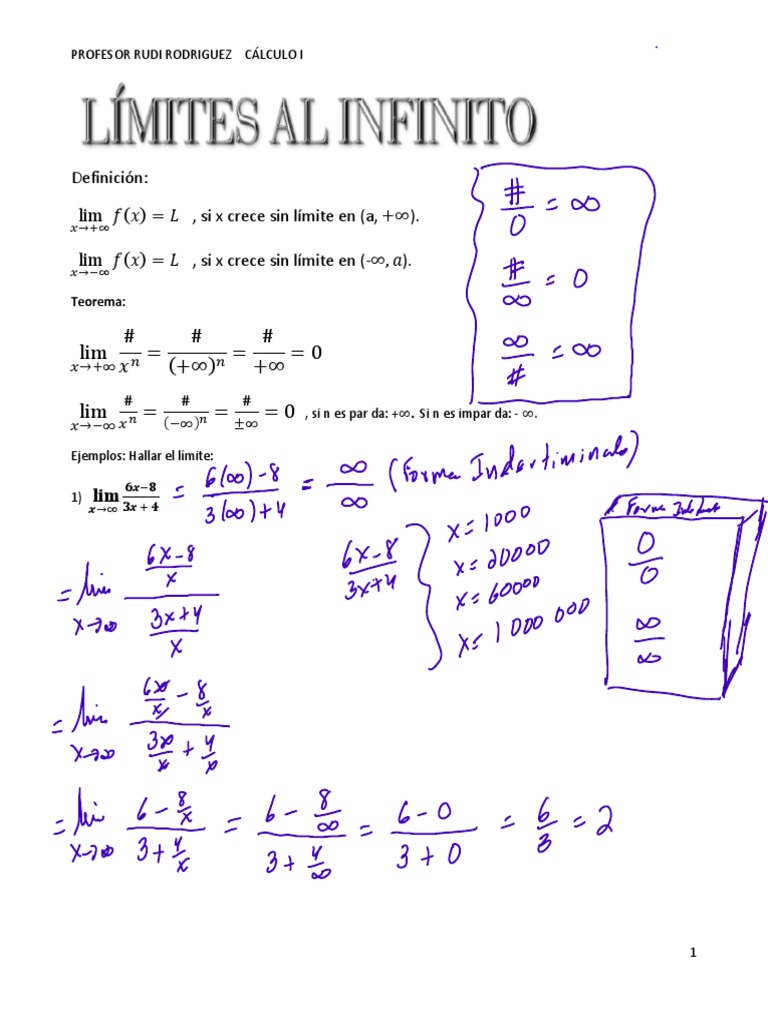 PROFESOR RUDI RODRIGUEZ CÁLCULO I
LÍMITES AL INFINITO
Definición:
lim x→+∞ f(x) = L , si x crece sin límite en (a, +∞).
lim x→−∞ f(x) = L , si x crece sin límite en (-∞, a).
#/0 = ∞
#/∞ = 0
∞/# = ∞
Teorema:
lim x→+∞ #/xⁿ = #/(+∞)ⁿ = #/+∞ = 0
lim x→−∞ #/xⁿ = #/(−∞)ⁿ = #/±∞ = 0 , si n es par da: +∞. Si n es impar da: - ∞.
Ejemplos: Hallar el límite:
1) lim x→∞ 6x−8/3x + 4 = 6(∞)-8/3(∞)+4 = ∞/∞ (Forma Indartiminals)
= lim x→∞ 6x-8/x / 3x+4/x
6x-8/3x+4
x=1000
x=20000
x=60000
x=1000 000
Forma
0/0
∞/∞
= lim x→∞ 6x/x - 8/x / 3x/x + 4/x
= lim x→∞ 6 - 8/x / 3+ 4/x = 6 - 8/∞ / 3+ 4/∞ = 6-0/3+0 = 6/3 = 2
1